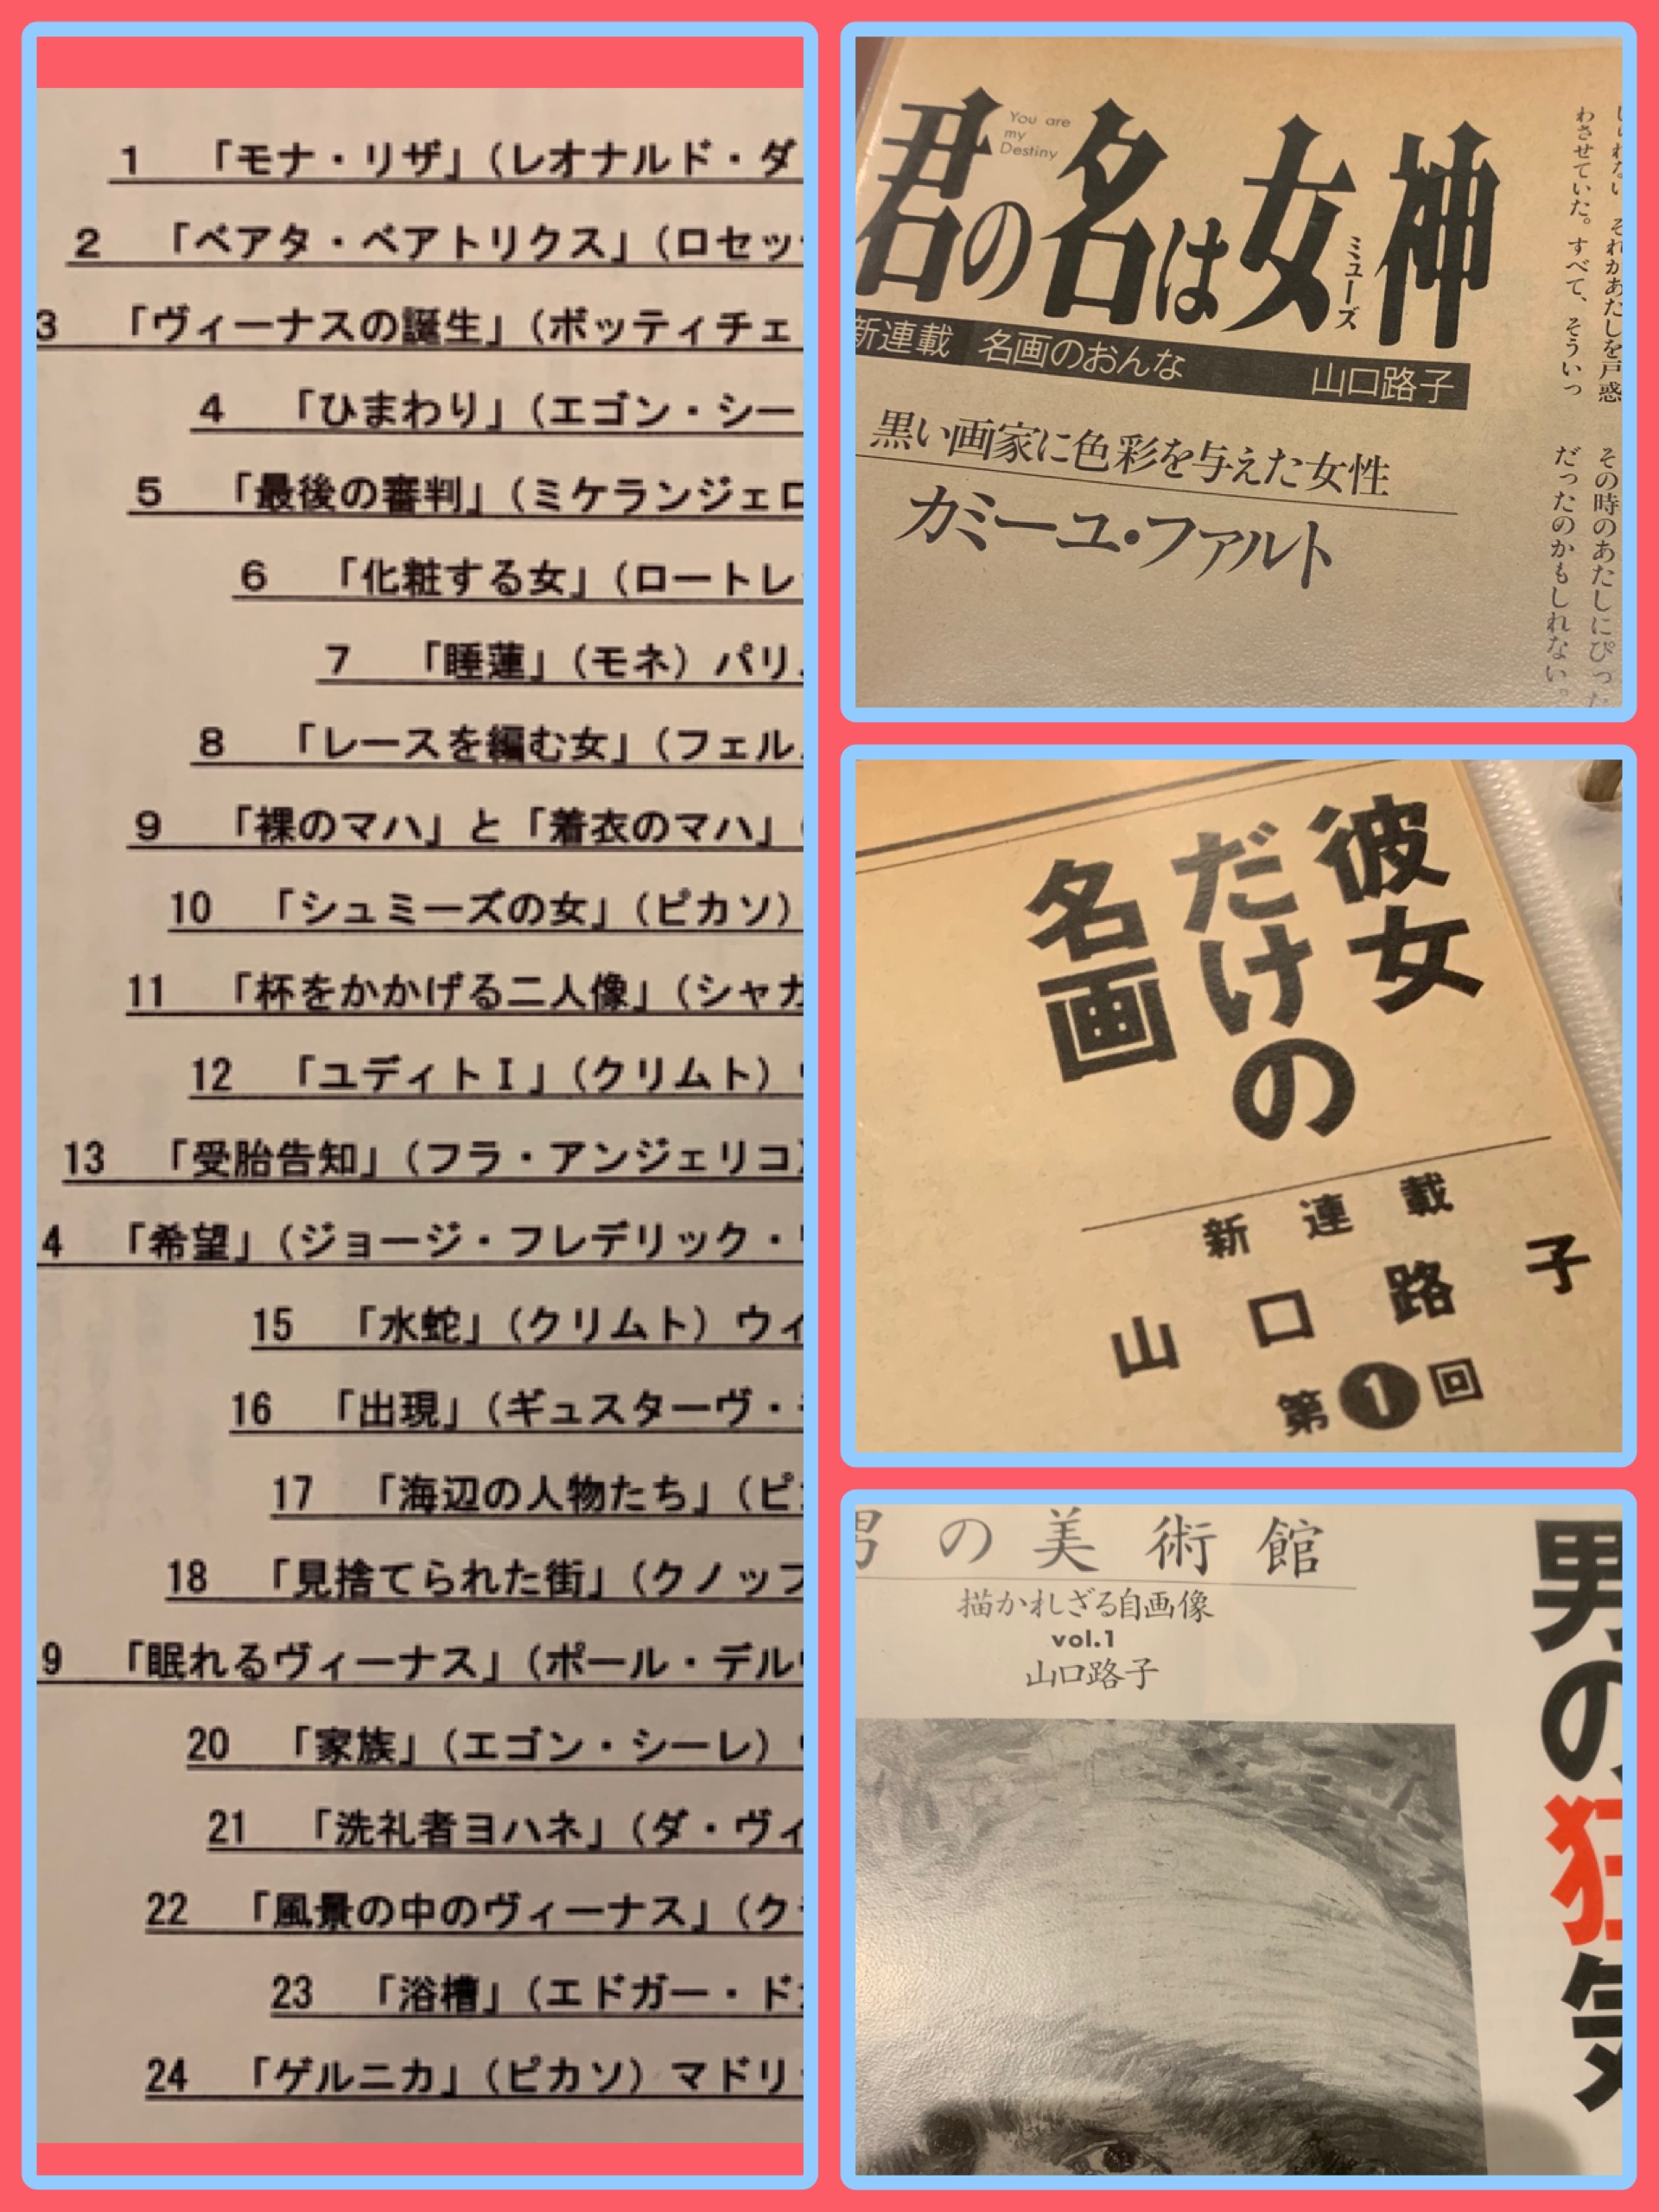 1 「モナ・リザ」（レオナルド・ダ
2 「ベアタ・ベアトリクス」（ロセッ
3 「ヴィーナスの誕生」（ボッティチェ
4 「ひまわり」（エゴン・シー
5 「最後の審判」（ミケランジェロ
6 「化粧する女」（ロートレ
7 「睡蓮」（モネ）パリ
8 「レースを編む女」（フェル
9 「裸のマハ」と「着衣のマハ」
10 「シュミーズの女」（ピカソ）
11 「杯をかかげる二人像」（シャガ
12 「ユディトⅠ」（クリムト）
13 「受胎告知」（フラ・アンジェリコ）
4 「希望」（ジョージ・フレデリック・
15 「水蛇」（クリムト）ウィ
16 「出現」（ギュスターヴ・
17 「海辺の人物たち」（ピ
18 「見捨てられた街」（クノップ
9 「眠れるヴィーナス」（ポール・デル
20 「家族」（エゴン・シーレ）
21 「洗礼者ヨハネ」（ダ・ヴィ
22 「風景の中のヴィーナス」（ク
23 「浴槽」（エドガー・ド
24 「ゲルニカ」（ピカソ）マドリ
君の名は女神
ミューズ
You are
my
Destiny
新連載 名画のおんな 山口路子
黒い画家に色彩を与えた女性
カミーユ・ファルト
それがあたしを戸惑
わさせていた。すべて、そういっ
その時のあたしにぴった
だったのかもしれない。
彼女
だけの
名画
新連載
山口路子
第1回
男の美術館
描かれざる自画像
vol.1
山口路子
男の狂気